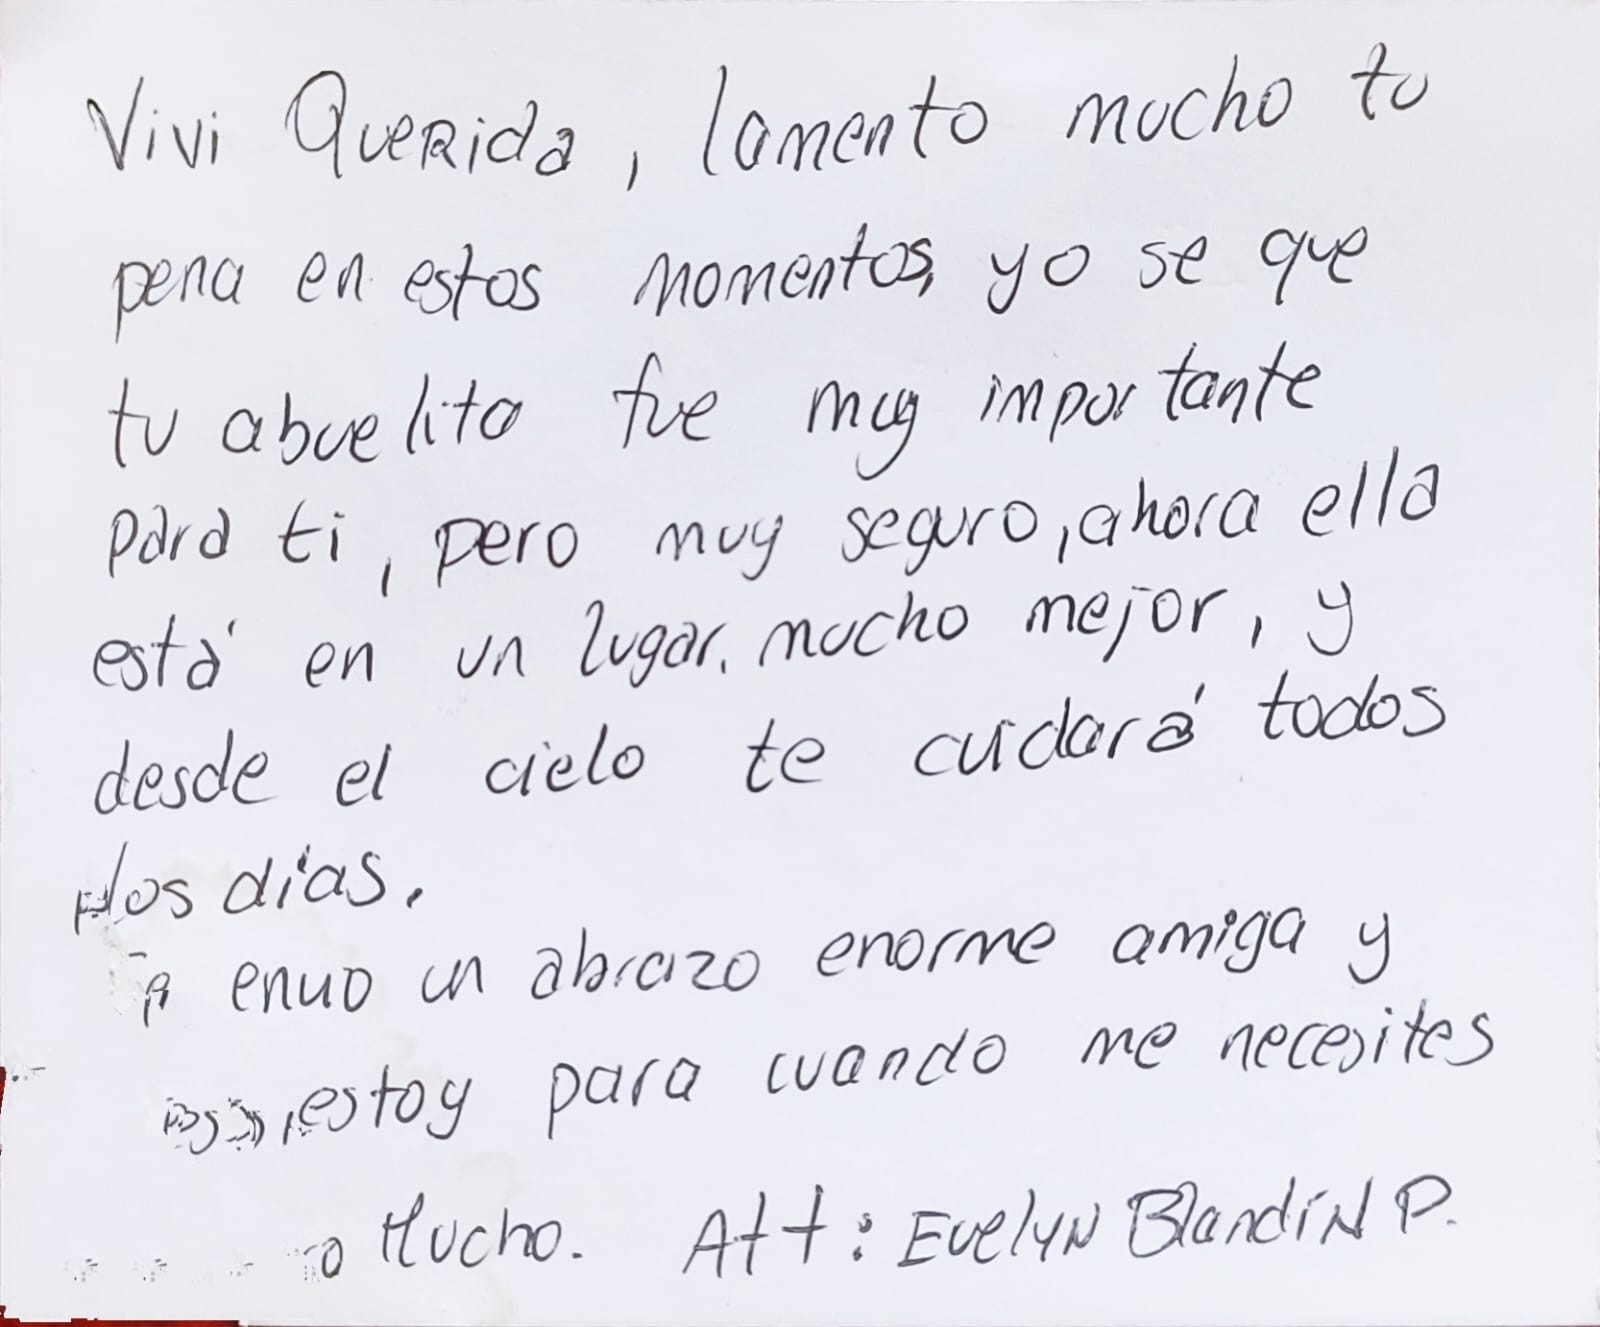 Vivi Querida, lamento mucho tu
pena en estos momentos, yo se que
tu abuelita fue muy importante
para ti, pero muy seguro, ahora ella
está en un lugar. mucho mejor, y
desde el cielo te cuidará todos
los días.
envio un abrazo enorme amiga y
estoy para cuando me necesites
Mucho. Att: Evelyn Blandín P.